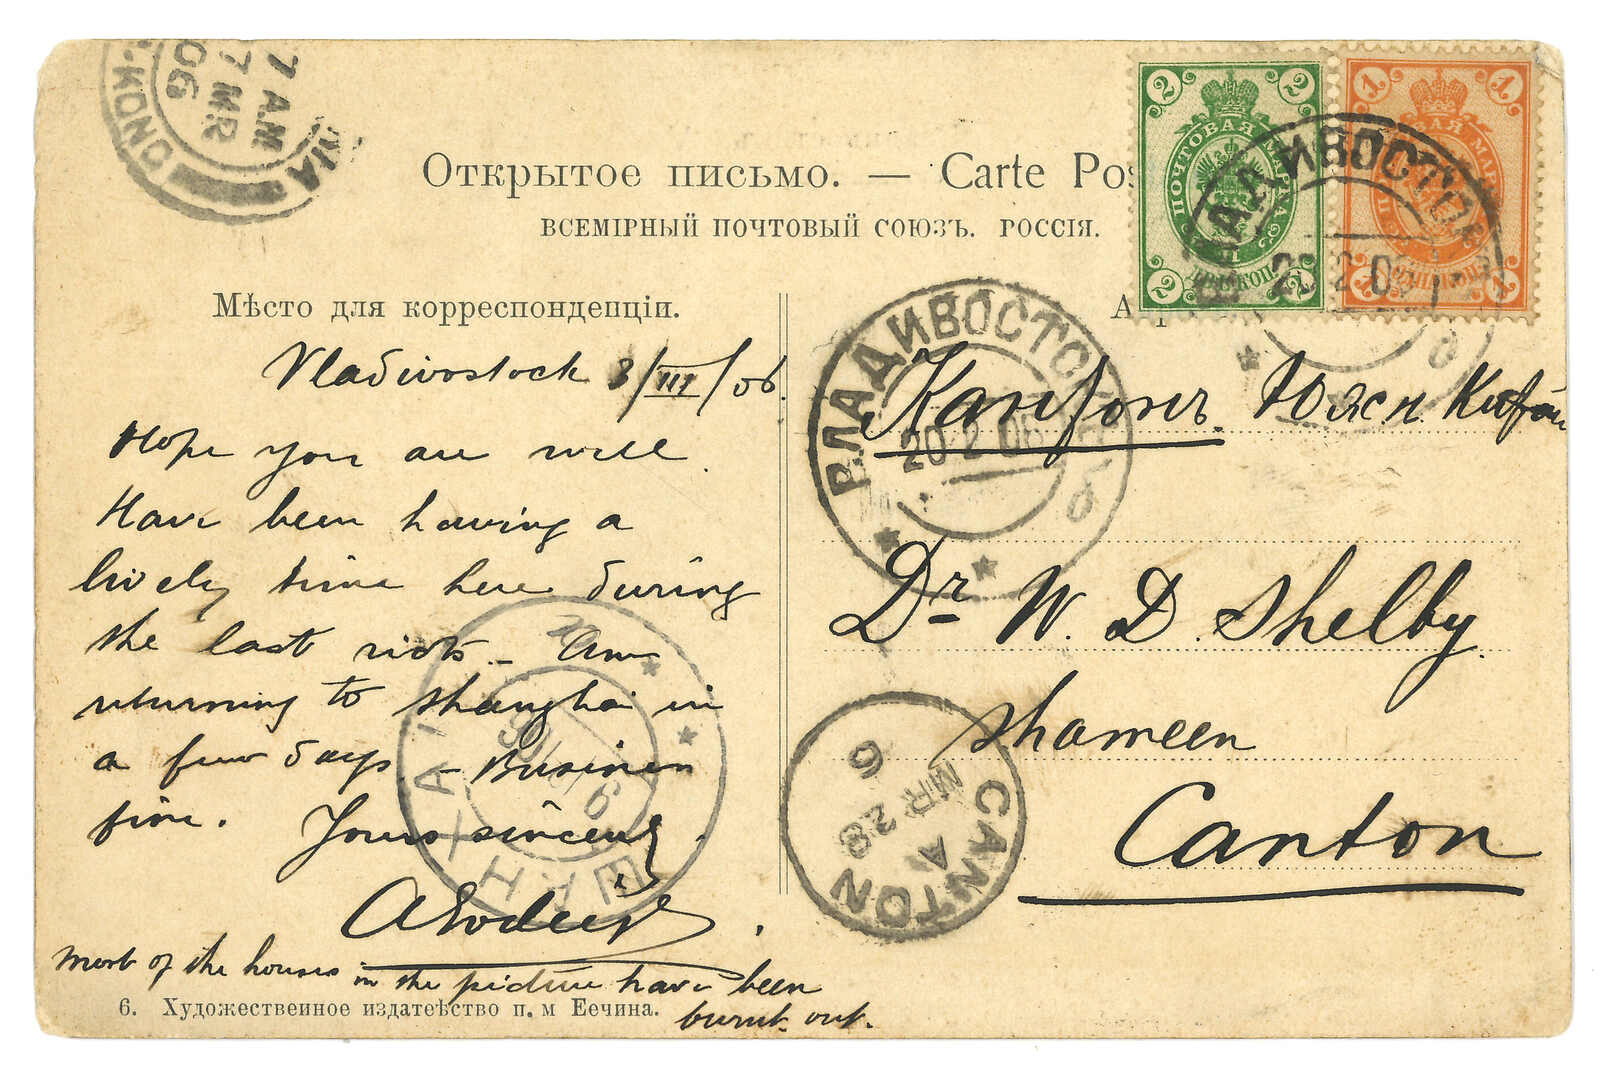 7 AM
7 MR
06
KONG
Открытое письмо. — Carte Pos
ВСЕМІРНЫЙ ПОЧТОВЫЙ СОЮЗЪ. РОССІЯ.
2 2
ПОЧТОВАЯ МАРКА
2 2
1 1
1
ВЛАДИВОСТОКЪ
Мѣсто для корреспонденціи.
Vladivostock 3/III/06
Hope you are well.
Have been having a
lively time here during
the last riots – Am
returning to Shanghai in
a few days – Business
fine. Yours sincerely
most of the houses in the picture have been
burnt out.
6. Художественное издатеѣство п. м Еечина.
ВЛАДИВОСТОКЪ
20 2 06
Кантонъ Южн Китай
Dr. W. D. Shelby.
Shameen
Canton
CANTON
A
MR 28
6
ШАНХАЙ